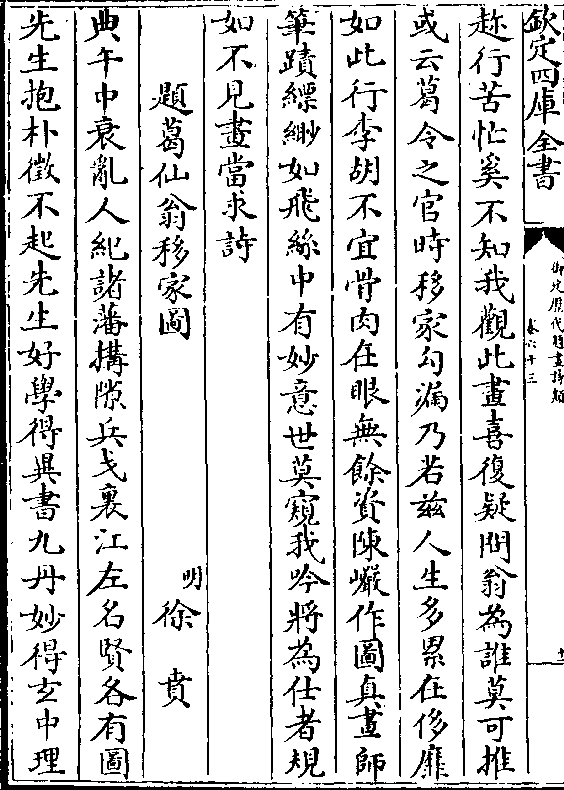 欽定四庫全書
御定歷代題畫詩類
卷六十三
十
趂行苦忙奚不知我觀此畫喜復疑問翁為誰莫可推
或云葛令之官時移家勾漏乃若兹人生多累在侈靡
如此行李胡不宜骨肉在眼無餘資陳巖作圖真畫師
筆蹟縹緲如飛絲中有妙意世莫窺我吟將為仕者規
如不見畫當求詩
題葛仙翁移家圖
明徐賁
典午中衰亂人紀諸藩搆隙兵戈裏江左名賢各有圖
先生抱朴徵不起先生好學得異書九丹妙得玄中理